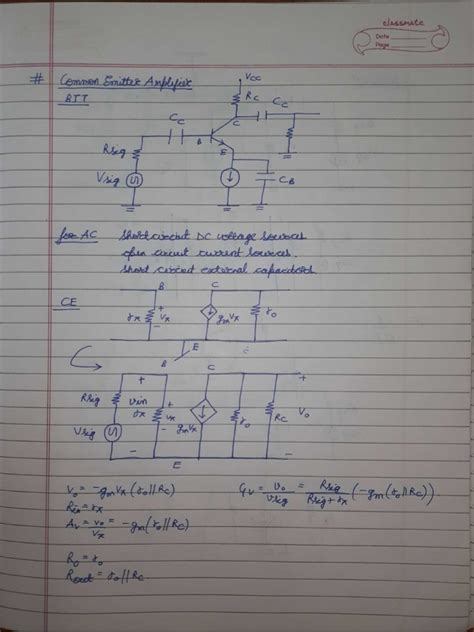 classmate
Date
Page
# Common Emitter Amplifier
BJT
VCC
RC
CC
C
CC
B
E
Rsig
Vsig
CB
for AC
short circuit DC voltage sources
open circuit current sources.
short circuit external capacitors
CE
B
C
rπ
+
vπ
−
gmvπ
ro
E
+
C
+
Rsig
vin
rπ
+
vπ
−
gmvπ
ro
RC
Vo
Vsig
−
−
E
Vo = −gmVπ (ro||RC)
Rin = rπ
Av = vo/vπ = −gm(ro||RC)
Ro = ro
Rout = ro||RC
Gv = vo/vsig = Rsig/(Rsig + rπ) (−gm(ro||RC))